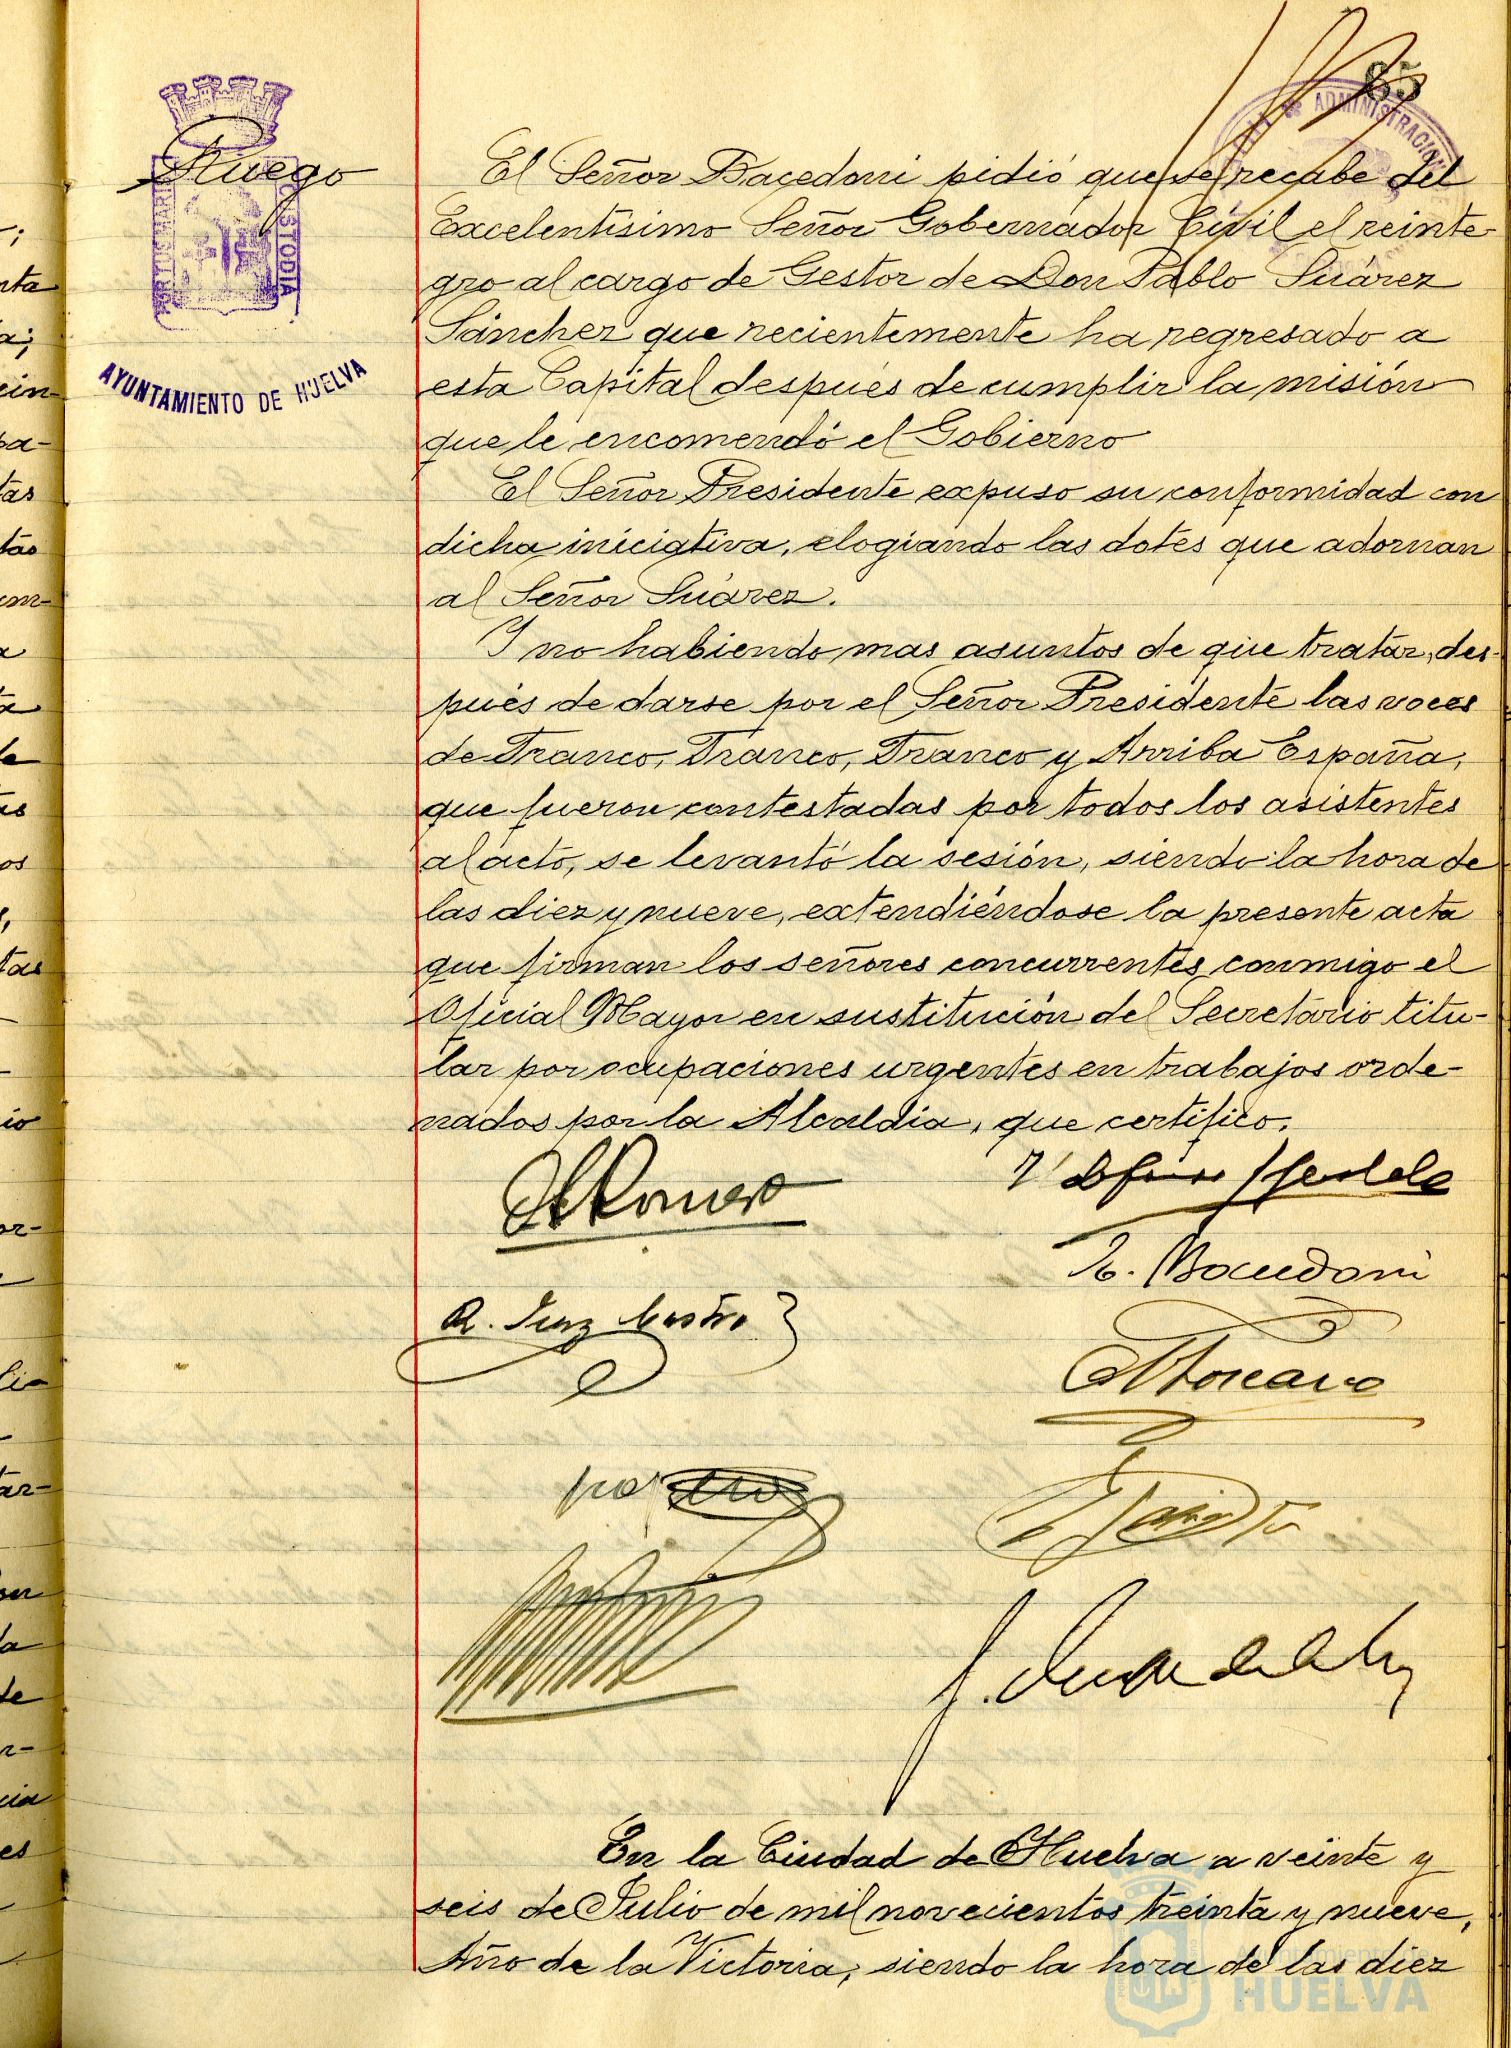 65
ADMINISTRACION
Ruego
PORTUS MARIS
CUSTODIA
AYUNTAMIENTO DE HUELVA
El Señor Bacedoni pidió que se recabe del
Excelentísimo Señor Gobernador Civil el reinte-
gro al cargo de Gestor de Don Pablo Suárez
Sánchez que recientemente ha regresado a
esta Capital después de cumplir la misión
que le encomendó el Gobierno
El Señor Presidente expuso su conformidad con
dicha iniciativa, elogiando las dotes que adornan
al Señor Suárez.
Y no habiendo mas asuntos de que tratar, des-
pués de darse por el Señor Presidente las voces
de Franco, Franco, Franco y Arriba España,
que fueron contestadas por todos los asistentes
al acto, se levantó la sesión, siendo la hora de
las diez y nueve, extendiéndose la presente acta
que firman los señores concurrentes conmigo el
Oficial Mayor en sustitución del Secretario titu-
lar por ocupaciones urgentes en trabajos orde-
nados por la Alcaldia, que certifico.
R. Bacedoni
En la Ciudad de Huelva a veinte y
seis de Julio de mil novecientos treinta y nueve,
Año de la Victoria, siendo la hora de las diez
Ayuntamiento de
HUELVA